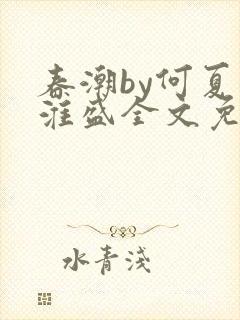 春潮by何夏
淮盛全文免
水青浅